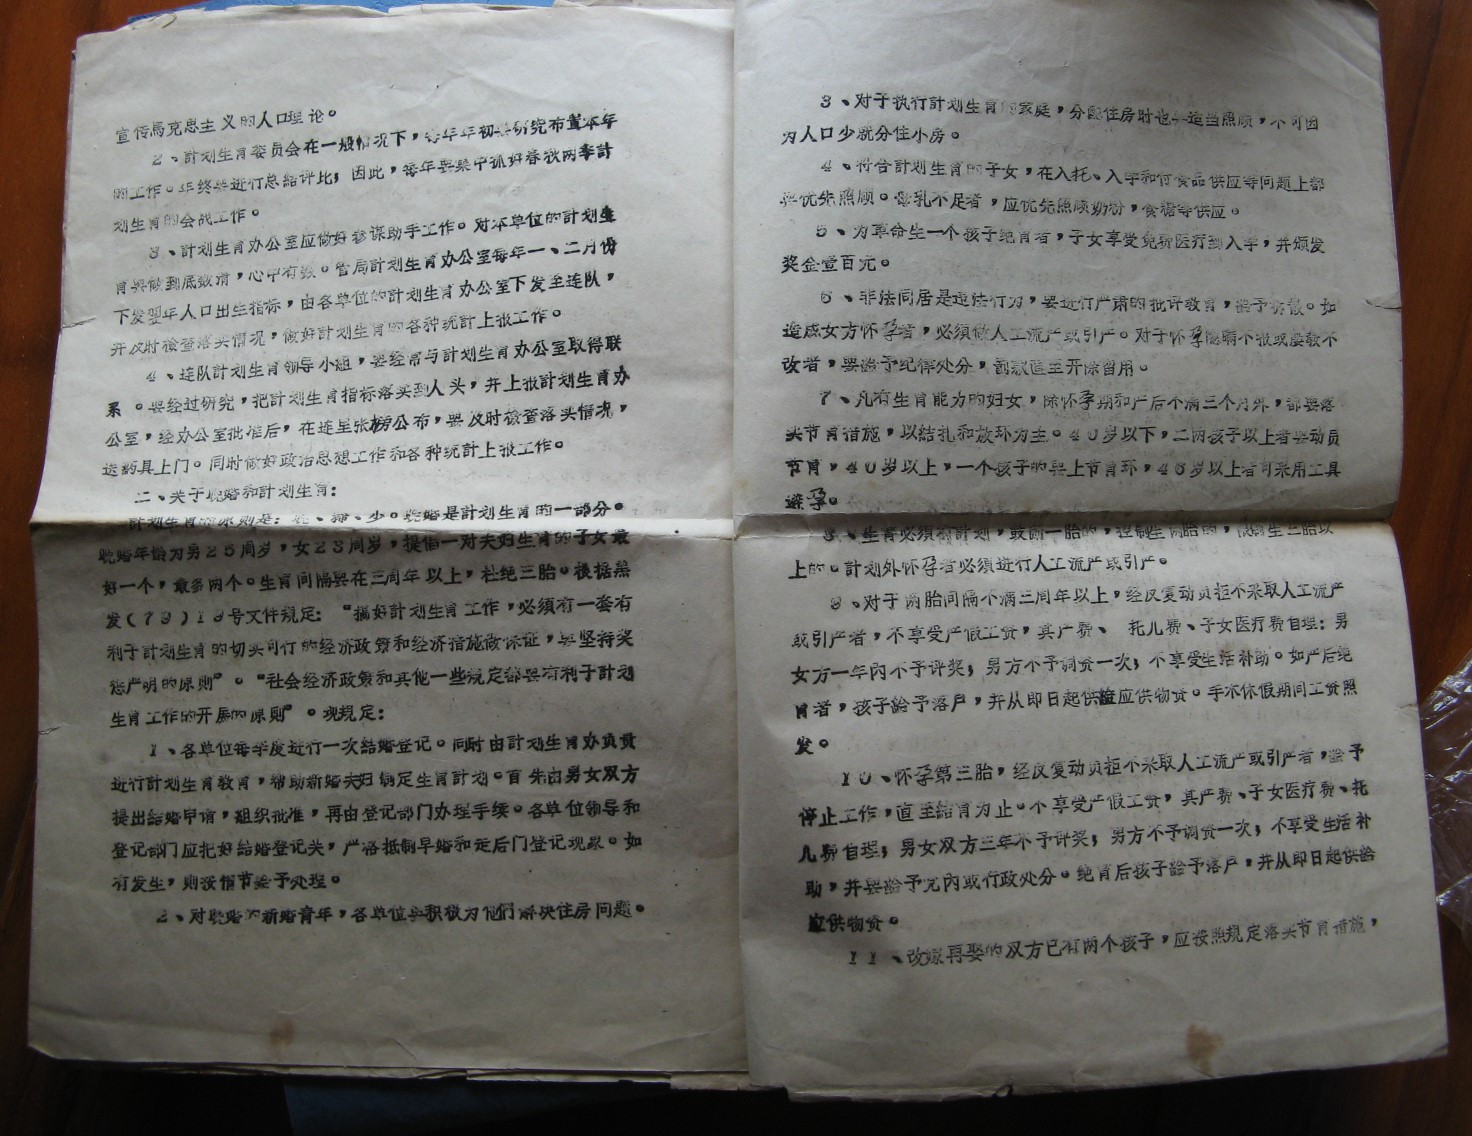 宣传马克思主义的人口理论。
2、計划生育委员会在一般情况下，每年年初要研究布置本年
的工作。年终要进行总結评比；因此，每年要集中抓好春秋两季計
划生育的会战工作。
3、計划生育办公室应做好参谋助手工作。对本单位的計划生
育要做到底数清，心中有数。管局計划生育办公室每年一、二月份
下发翌年人口出生指标，由各单位的計划生育办公室下发至连队，
并及时检查落实情况，做好計划生育的各种统計上报工作。
4、连队計划生育领导小組，要经常与計划生育办公室取得联
系。要经过研究，把計划生育指标落实到人头，并上报計划生育办
公室，经办公室批准后，在连里张榜公布，要及时检查落实情况，
送药具上门。同时做好政治思想工作和各种统計上报工作。
二、关于晚婚和計划生育：
計划生育的原则是：晚、稀、少。晚婚是計划生育的一部分。
晚婚年龄为男25周岁，女23周岁，提倡一对夫妇生育的子女最
好一个，最多两个。生育间隔要在三周年以上，杜绝三胎。根据黑
发（79）19号文件规定：“搞好計划生育工作，必须有一套有
利于計划生育的切实可行的经济政策和经济措施做保证，要坚持奖
惩严明的原则”。“社会经济政策和其他一些规定都要有利于計划
生育工作的开展的原则”。现规定：
1、各单位每季度进行一次結婚登记。同时由計划生育办负责
进行計划生育教育，帮助新婚夫妇制定生育計划。首先由男女双方
提出結婚申请，组织批准，再由登记部门办理手续。各单位领导和
登记部门应把好結婚登记关，严格抵制早婚和走后门登记现象。如
有发生，则按情节給予处理。
2、对晚婚的新婚青年，各单位要积极为他们解决住房问题。
3、对于执行計划生育的家庭，分配住房时也要适当照顾，不可因
为人口少就分住小房。
4、符合計划生育的子女，在入托、入学和付食品供应等问题上都
要优先照顾。母乳不足者，应优先照顾奶粉，食糖等供应。
5、为革命生一个孩子绝育者，子女享受免费医疗到入学，并颁发
奖金壹百元。
6、非法同居是违法行为，要进行严肃的批评教育，給予拆散。如
造成女方怀孕者，必须做人工流产或引产。对于怀孕隐瞒不报或屡教不
改者，要給予纪律处分，罚款直至开除留用。
7、凡有生育能力的妇女，除怀孕期和产后不满三个月外，都要落
实节育措施，以结扎和放环为主。40岁以下，二两孩子以上者要动员
节育，40岁以上，一个孩子的要上节育环，46岁以上者可采用工具
避孕。
8、生育必须有計划，鼓励一胎的，控制生两胎的，限制生三胎以
上的。計划外怀孕者必须进行人工流产或引产。
9、对于两胎间隔不满三周年以上，经反复动员拒不采取人工流产
或引产者，不享受产假工资，其产费、 托儿费、子女医疗费自理；男
女方一年内不予评奖；男方不予调资一次；不享受生活补助。如产后绝
育者，孩子給予落户，并从即日起供給应供物资。手术休假期间工资照
发。
10、怀孕第三胎，经反复动员拒不采取人工流产或引产者，給予
停止工作，直至結育为止。不享受产假工资，其产费、子女医疗费、托
儿费自理；男女双方三年不予评奖；男方不予调资一次；不享受生活补
助，并要給予党内或行政处分。绝育后孩子給予落户，并从即日起供給
应供物资。
11、改嫁再娶的双方已有两个孩子，应按照规定落实节育措施，